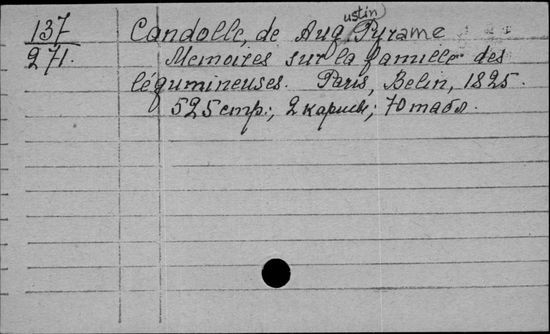 137
271.
Candolle, de Augustin Pyrame
Memoires sur la famille des
légumineuses. Paris, Belin, 1825.
525 стр.; 2 карты; 70 табл.